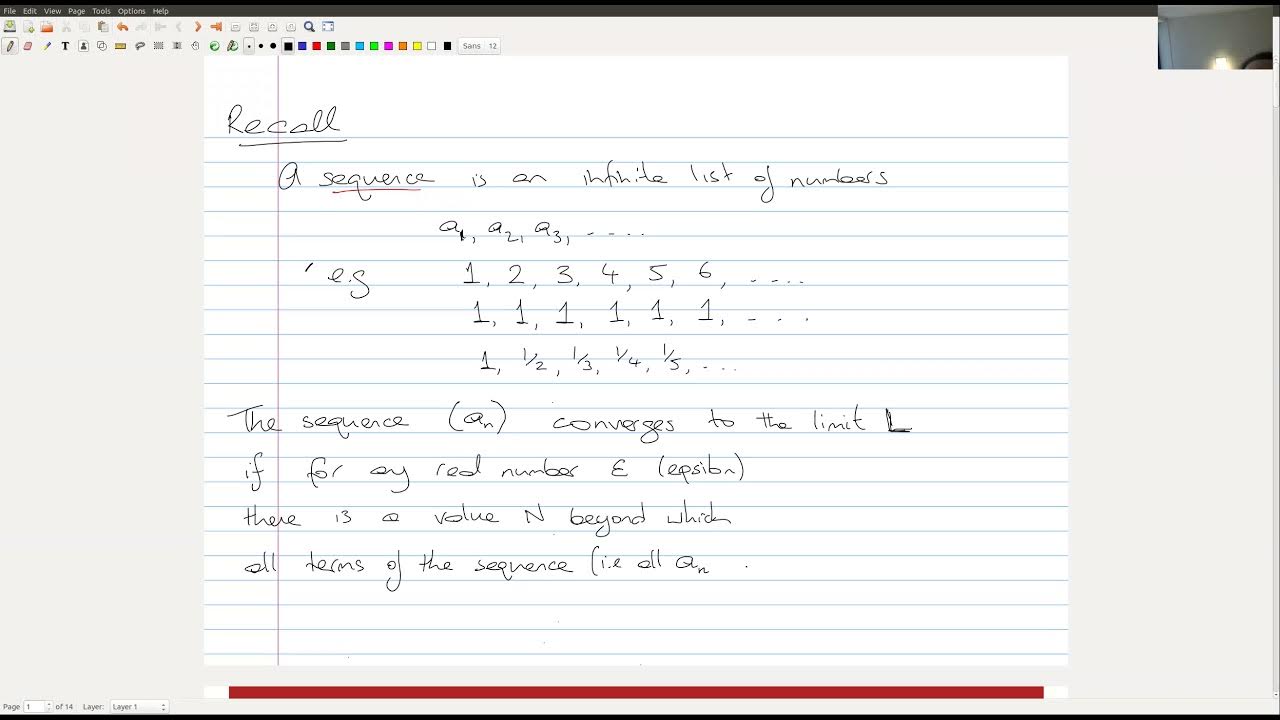 File Edit View Page Tools Options Help
Sans 12
Recall
A sequence is an infinite list of numbers
a1, a2, a3, ....
e.g 1, 2, 3, 4, 5, 6, ....
1, 1, 1, 1, 1, 1, ....
1, 1/2, 1/3, 1/4, 1/5, ...
The sequence (an) converges to the limit L
if for any real number ε (epsilon)
there is a value N beyond which
all terms of the sequence (i.e all an
Page 1 of 14 Layer: Layer 1